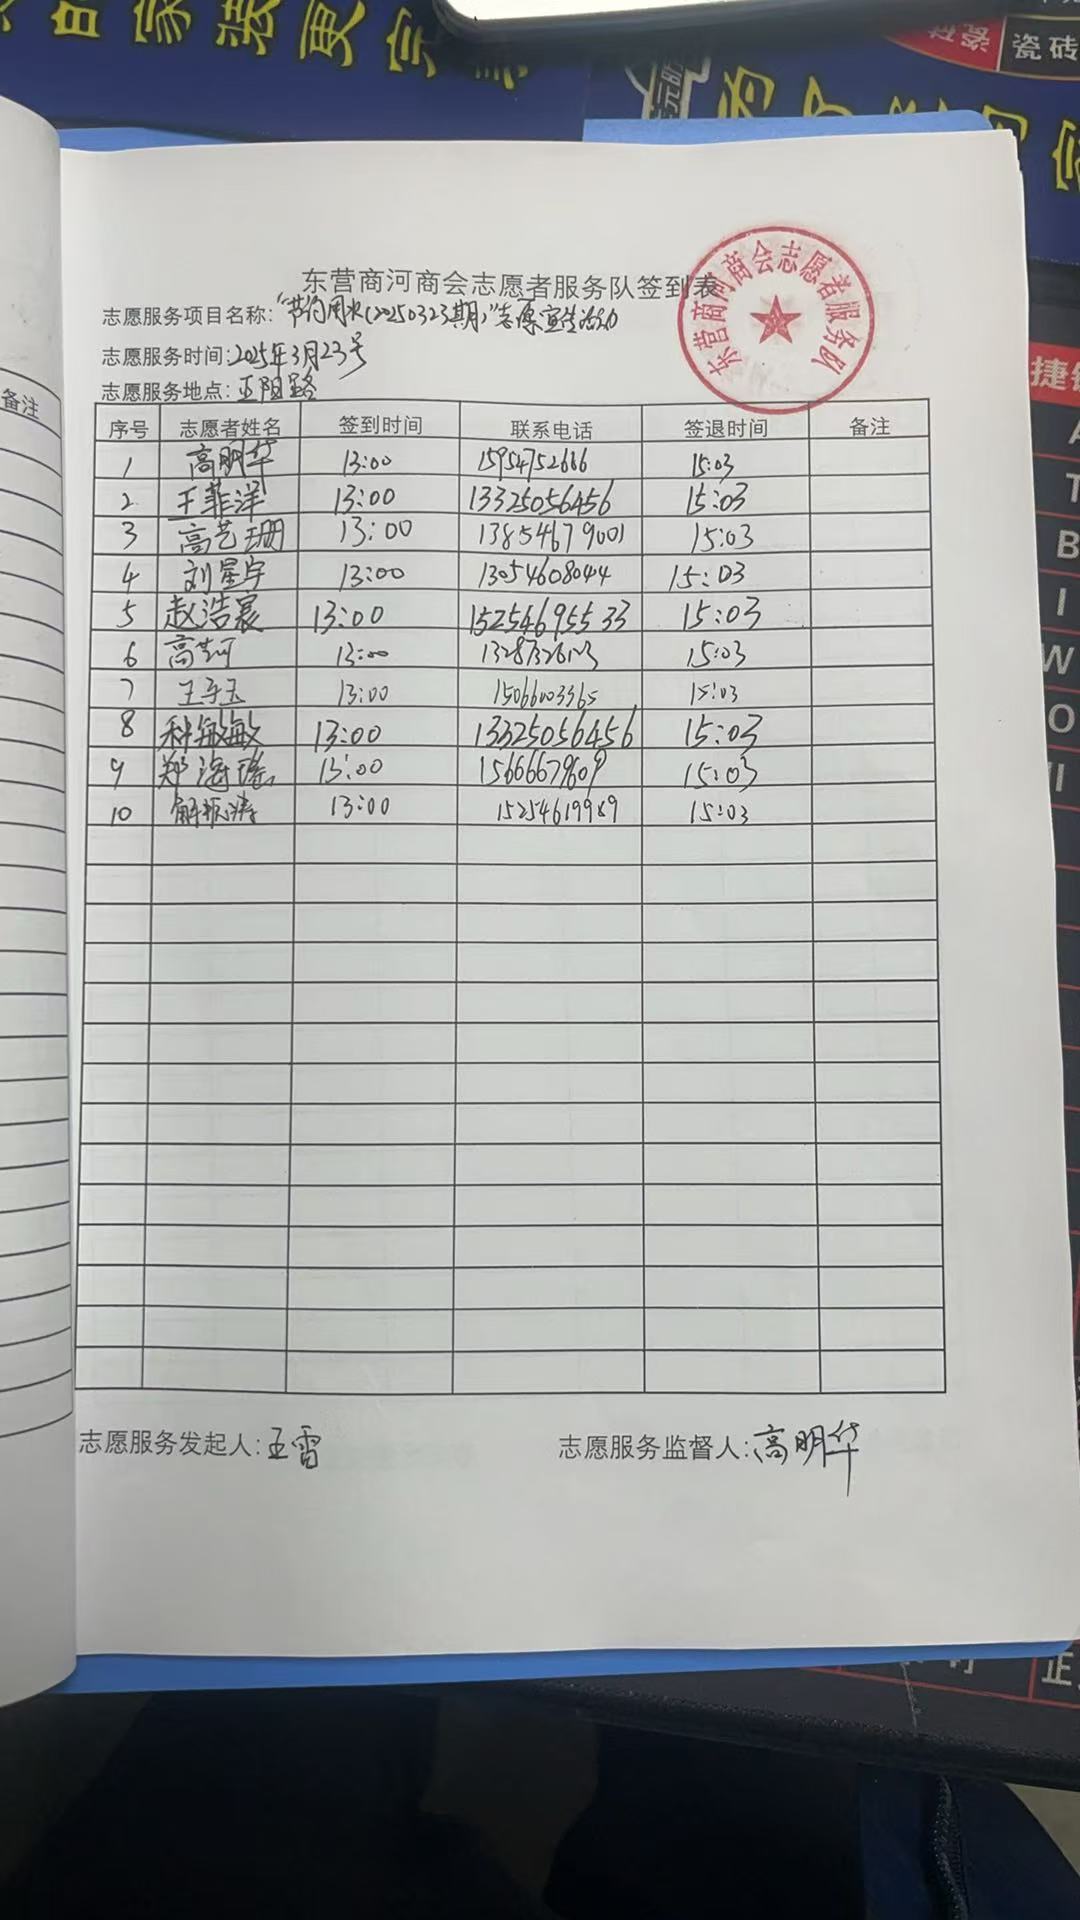 瓷砖
备注
东营商河商会志愿者服务队签到表
东营商河商会志愿者服务队
志愿服务项目名称:“节约用水(20250323期)”志愿宣传活动
志愿服务时间:2025年3月23号
志愿服务地点:正阳路
序号 志愿者姓名 签到时间 联系电话 签退时间 备注
1 高明华 13:00 15954752666 15:03
2 王菲洋 13:00 13325056456 15:03
3 高艺珊 13:00 13854679001 15:03
4 刘星宇 13:00 13054608044 15:03
5 赵浩宸 13:00 15254695533 15:03
6 13:00 15:03
7 13:00 15066003365 15:03
8 敏敏 13:00 13325056456 15:03
9 郑海瑶 13:00 15666679609 15:03
10 解振涛 13:00 15254619989 15:03
志愿服务发起人:王雷
志愿服务监督人:高明华